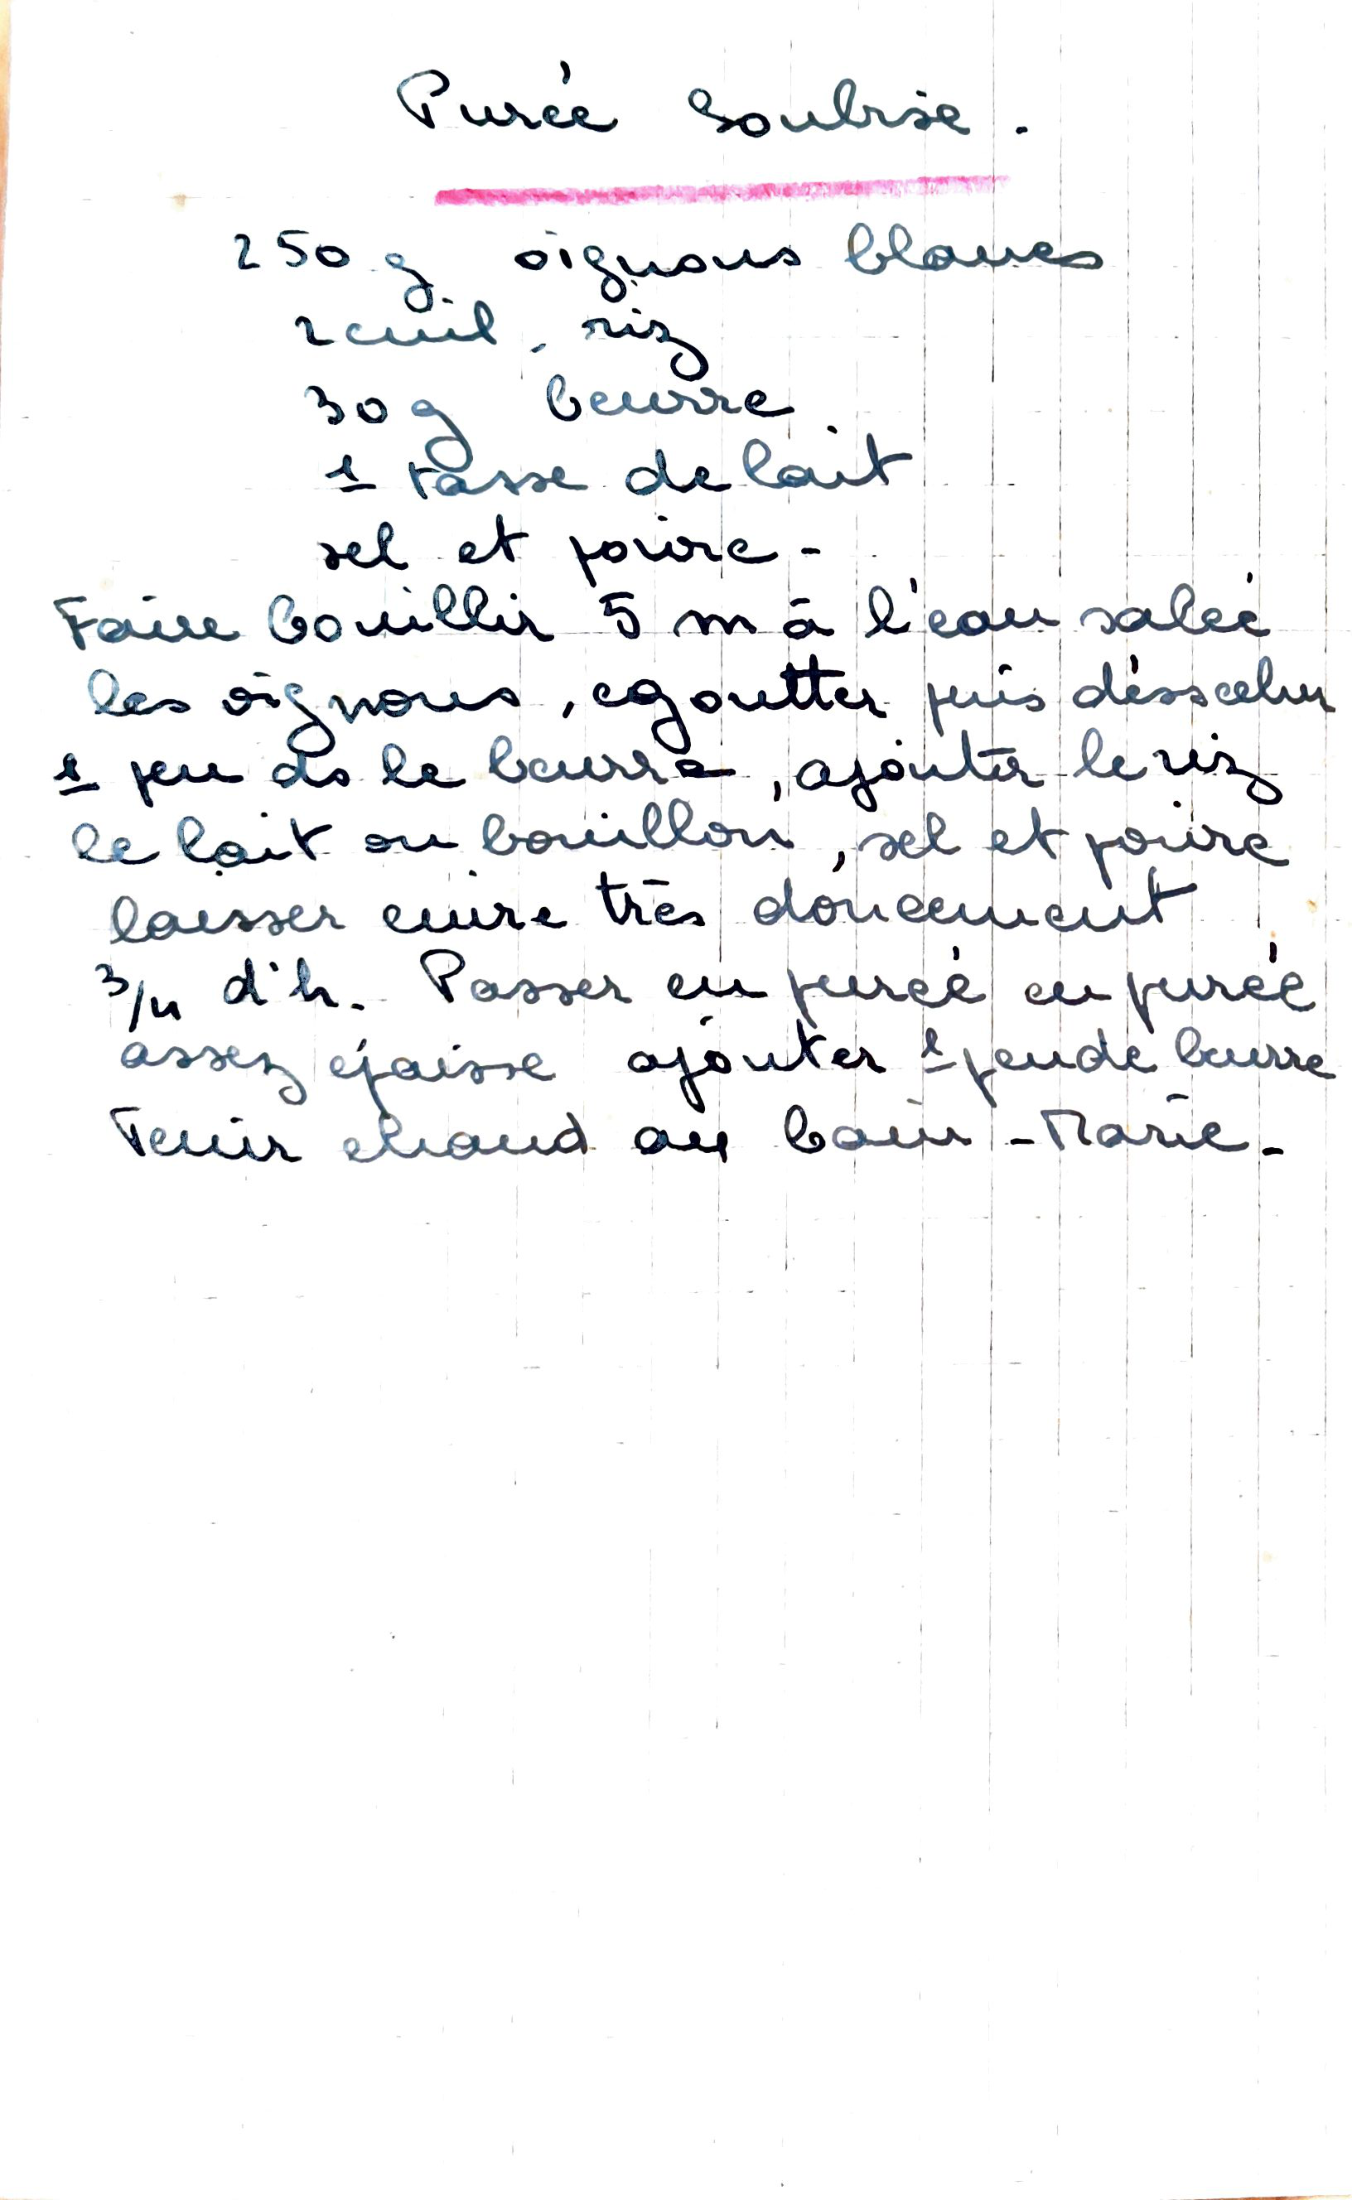 Purée Soubise.
250 g oignons blancs
2 cuil. riz
30 g beurre
1 tasse de lait
sel et poivre -
Faire bouillir 5 m à l'eau salée
les oignons, egoutter puis déssecher
1 peu ds le beurre, ajouter le riz
le lait ou bouillon, sel et poivre
laisser cuire très doucement
3/4 d'h. Passer en purée en purée
assez epaisse ajouter 1 peu de beurre
Tenir chaud au bain-Marie.